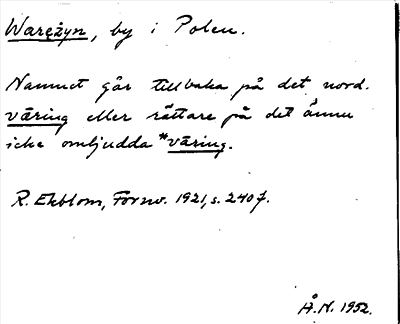 Waręžyn, by i Polen.
Namnet går tillbaka på det nord.
väring eller rättare på det ännu
icke omljudda *vāring.
R. Ekblom, Fornv. 1921, s. 240 f.
Å.N. 1952.